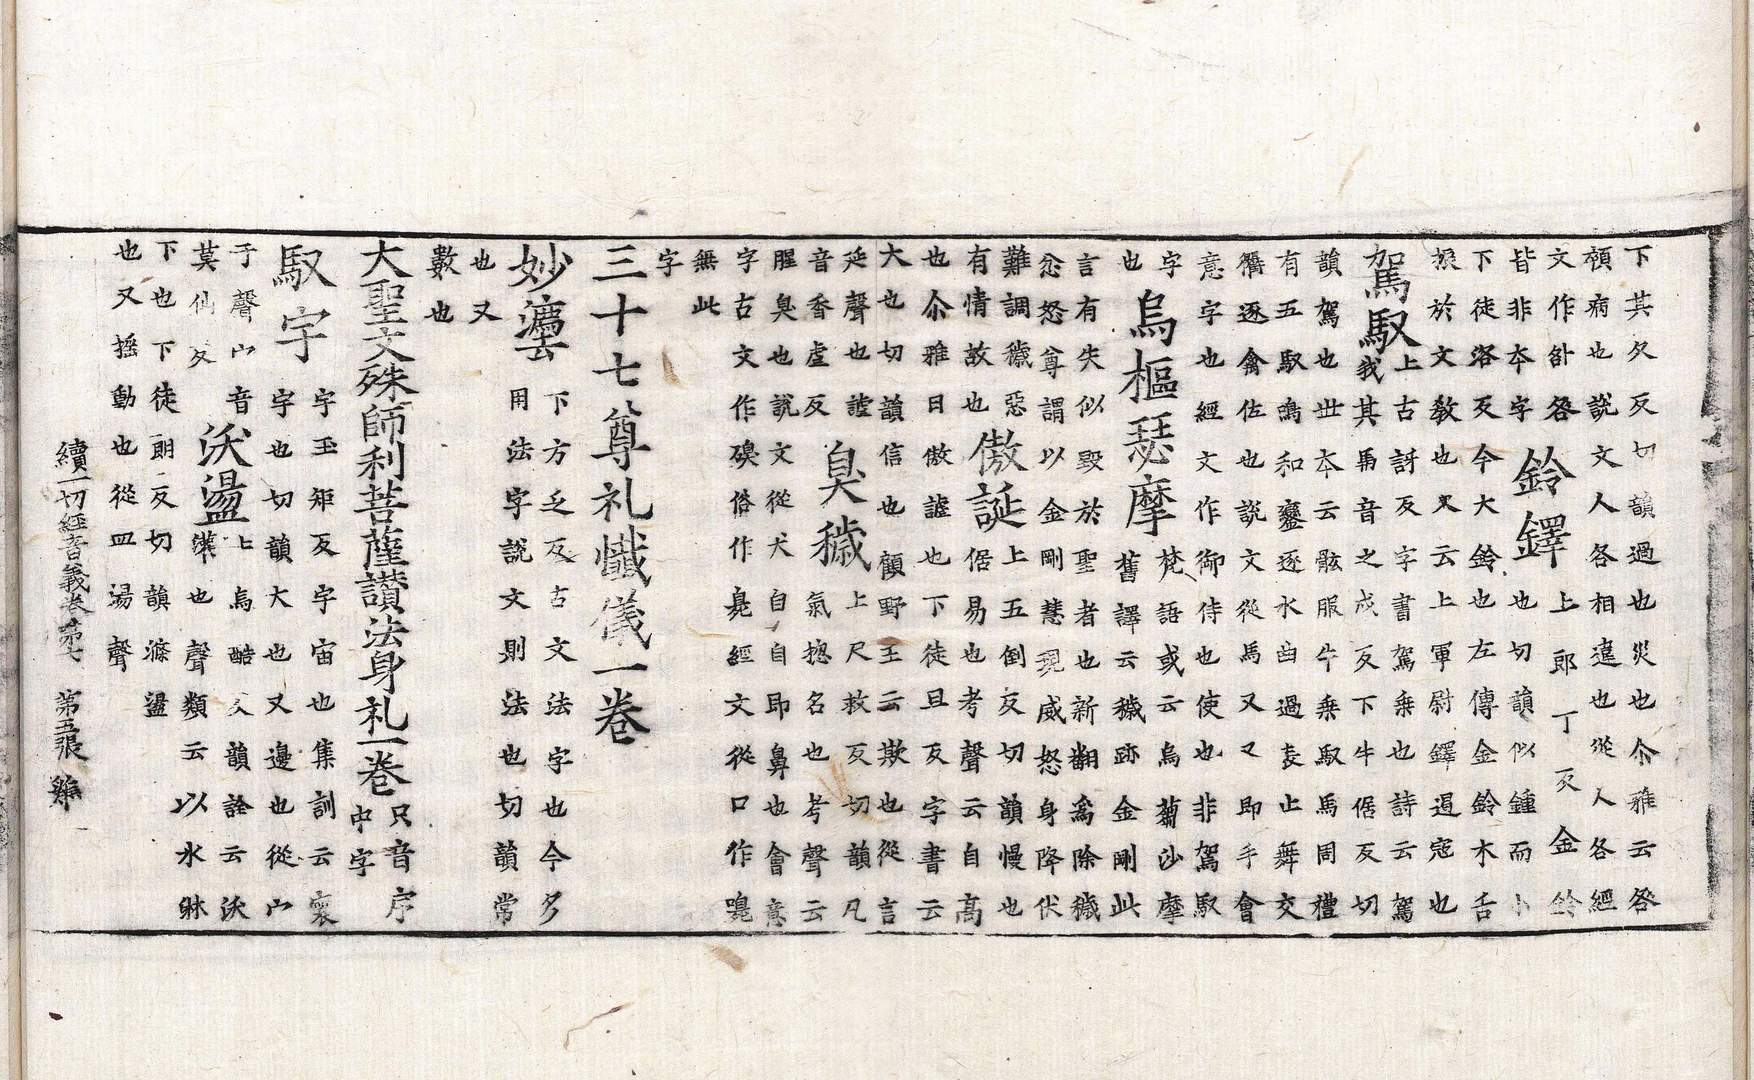 下其久反切韻過也災也尒雅云咎
頓病也說文人各相違也從人各經
文作卧咎
皆非本字
鈴鐸
上郎丁反金鈴
也切韻似鍾而小
下徒洛反今大鈴也左傳金鈴木舌
振於文教也又云上軍尉鐸遏寇也
駕馭
上古訝反字書駕乘也詩云駕
我其馬音之戍反下牛倨反切
韻駕也世本云骸服牛乘馭馬周禮
有五馭鳴和鸞逐水曲過表止舞交
衢逐禽佐也說文從馬又又即手會
意字也經文作御侍也使也非駕馭
字
也
烏樞瑟摩
梵語或云烏蒭沙摩
舊譯云穢跡金剛此
言有失似毀於聖者也新翻為除穢
忿怒尊謂以金剛慧現威怒身降伏
難調穢惡
有情故也
傲誕
上五倒反切韻慢也
倨易也考聲云自高
也尒雅曰傲謔也下徒旦反字書云
大也切韻信也顧野王云欺也從言
延聲也謔
音香虐反
臭穢
上尺救反切韻凡
氣揔名也考聲云
腥臭也說文從犬自自即鼻也會意
字古文作䑔俗作臰經文從口作嗅
無此
字
三十七尊礼懺儀一卷
妙灋
下方乏反古文法字也今多
用法字說文則法也切韻常
也又
數也
大聖文殊師利菩薩讚法身礼一卷
只音序
中字
馭宇
宇玉矩反宇宙也集訓云寰
宇也切韻大也又邊也從宀
于聲宀音
莫仙反
沃盪
上烏酷反韻詮云沃
漑也聲類云以水淋
下也下徒朗反切韻滌盪
也又搖動也從皿湯聲
續一切經音義卷第七 第五張 雞